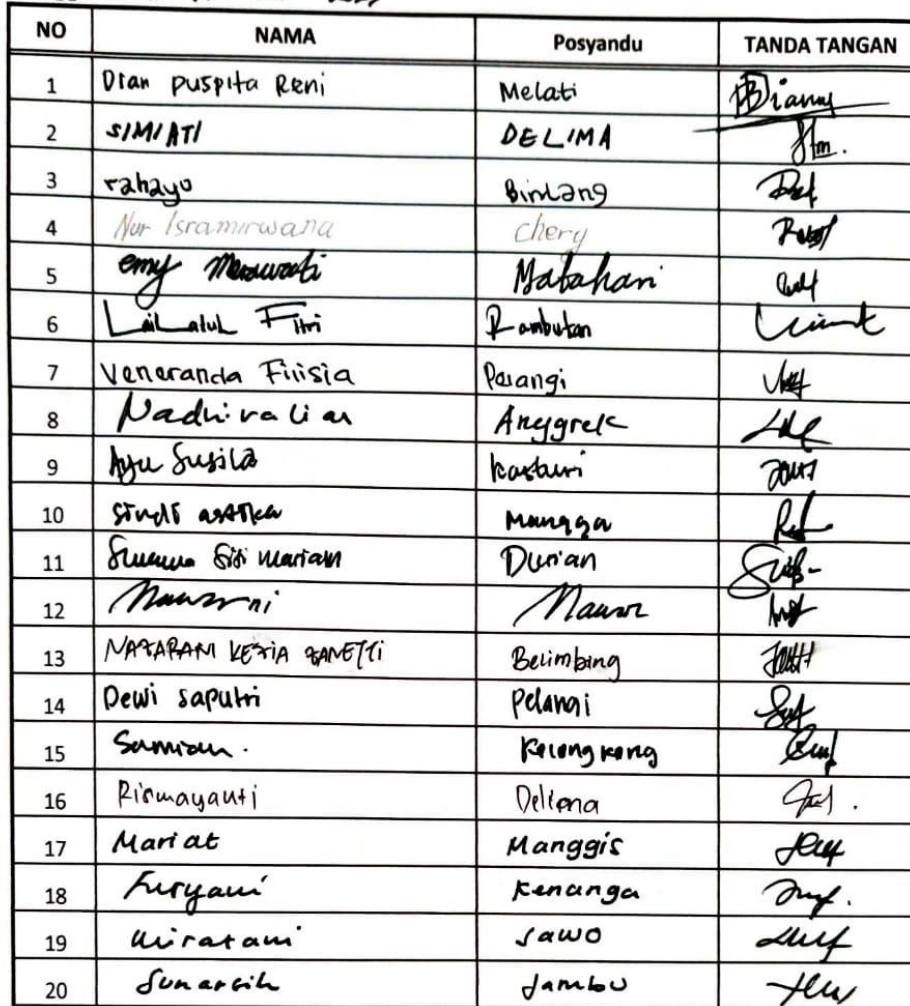 NO NAMA Posyandu TANDA TANGAN
1 Dian puspita Reni Melati
2 SIMIATI DELIMA
3 rahayu Bintang
4 Nur Isramirwana chery
5 emy Matahari
6 Lailalul Fitri Rambutan
7 Veneranda Firisia Parangi
8 Anggrek
9 Ayu Susila kasturi
10 Mangga
11 Siti mariam Durian
12 Mawarni Mawar
13 KEZIA ZANETTI Belimbing
14 Dewi saputri Pelangi
15 Samiau. Kelengkeng
16 Rismayanti Delima
17 Mariat Manggis
18 Furyani Kenanga
19 Sawo
20 Sunarsih Jambu